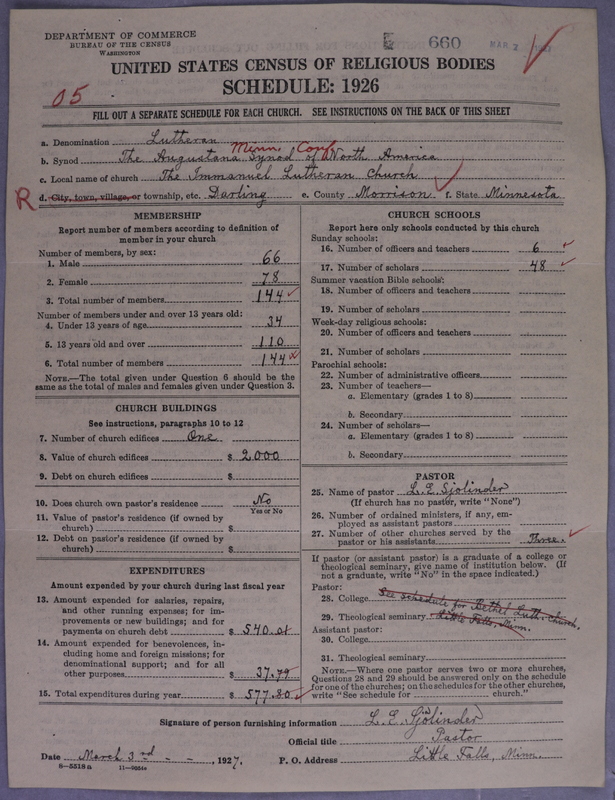 DEPARTMENT OF COMMERCE
BUREAU OF THE CENSUS
WASHINGTON
660
MAR 7
UNITED STATES CENSUS OF RELIGIOUS BODIES
SCHEDULE: 1926
05
FILL OUT A SEPARATE SCHEDULE FOR EACH CHURCH. SEE INSTRUCTIONS ON THE BACK OF THIS SHEET
a. Denomination Lutheran
Minn Conf
b. Synod The Augustana Synod of North America
c. Local name of church The Immanuel Lutheran Church
R d. City, town, village, or township, etc. Darling e. County Morrison f. State Minnesota
MEMBERSHIP
Report number of members according to definition of
member in your church
Number of members, by sex:
1. Male 66
2. Female 78
3. Total number of members 144
Number of members under and over 13 years old:
4. Under 13 years of age 34
5. 13 years old and over 110
6. Total number of members 144
NOTE.—The total given under Question 6 should be the
same as the total of males and females given under Question 3.
CHURCH BUILDINGS
See instructions, paragraphs 10 to 12
7. Number of church edifices One
8. Value of church edifices $ 2000
9. Debt on church edifices $
10. Does church own pastor's residence No
Yes or No
11. Value of pastor's residence (if owned by
church) $
12. Debt on pastor's residence (if owned by
church) $
EXPENDITURES
Amount expended by your church during last fiscal year
13. Amount expended for salaries, repairs,
and other running expenses; for im-
provements or new building; and for
payments on church debt $ 540.01
14. Amount expended for benevolences, in-
cluding home and foreign missions; for
denominational support; and for all
other purposes $ 37.79
15. Total expenditures during year $ 577.80
CHURCH SCHOOLS
Report here only schools conducted by this church
Sunday schools:
16. Number of officers and teachers 6
17. Number of scholars 48
Summer vacation Bible schools:
18. Number of officers and teachers
19. Number of scholars
Week-day religious schools:
20. Number of officers and teachers
21. Number of scholars
Parochial schools:
22. Number of administrative officers
23. Number of teachers—
a. Elementary (grades 1 to 8)
b. Secondary
24. Number of scholars—
a. Elementary (grades 1 to 8)
b. Secondary
PASTOR
25. Name of pastor L. E. Sjolinder
(If church has no pastor, write "None")
26. Number of ordained ministers, if any, em-
ployed as assistant pastors
27. Number of other churches served by the
pastor or his assistants Three
If pastor (or assistant pastor) is a graduate of a college or
theological seminary, give name of institution below. (If
not a graduate, write "No" in the space indicated.)
Pastor:
28. College See schedule for Bethel Luth. Church.
29. Theological seminary Little Falls, Minn.
Assistant pastor:
30. College
31. Theological seminary
NOTE.—Where one pastor serves two or more churches,
Questions 28 and 29 should be answered only on the schedule
for one of the churches; on the schedules for the other churches,
write "See schedule for church."
Signature of person furnishing information L. E. Sjölinder
Official title Pastor
Date March 3rd, 1927. P. O. Address Little Falls, Minn.
8—5518a 11—9054